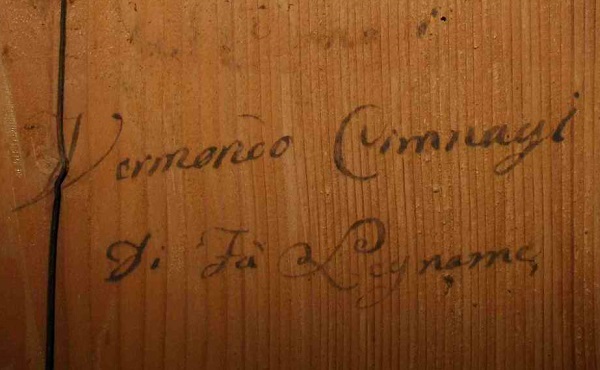 Vermondo Cimnagi
Di Fà Legname